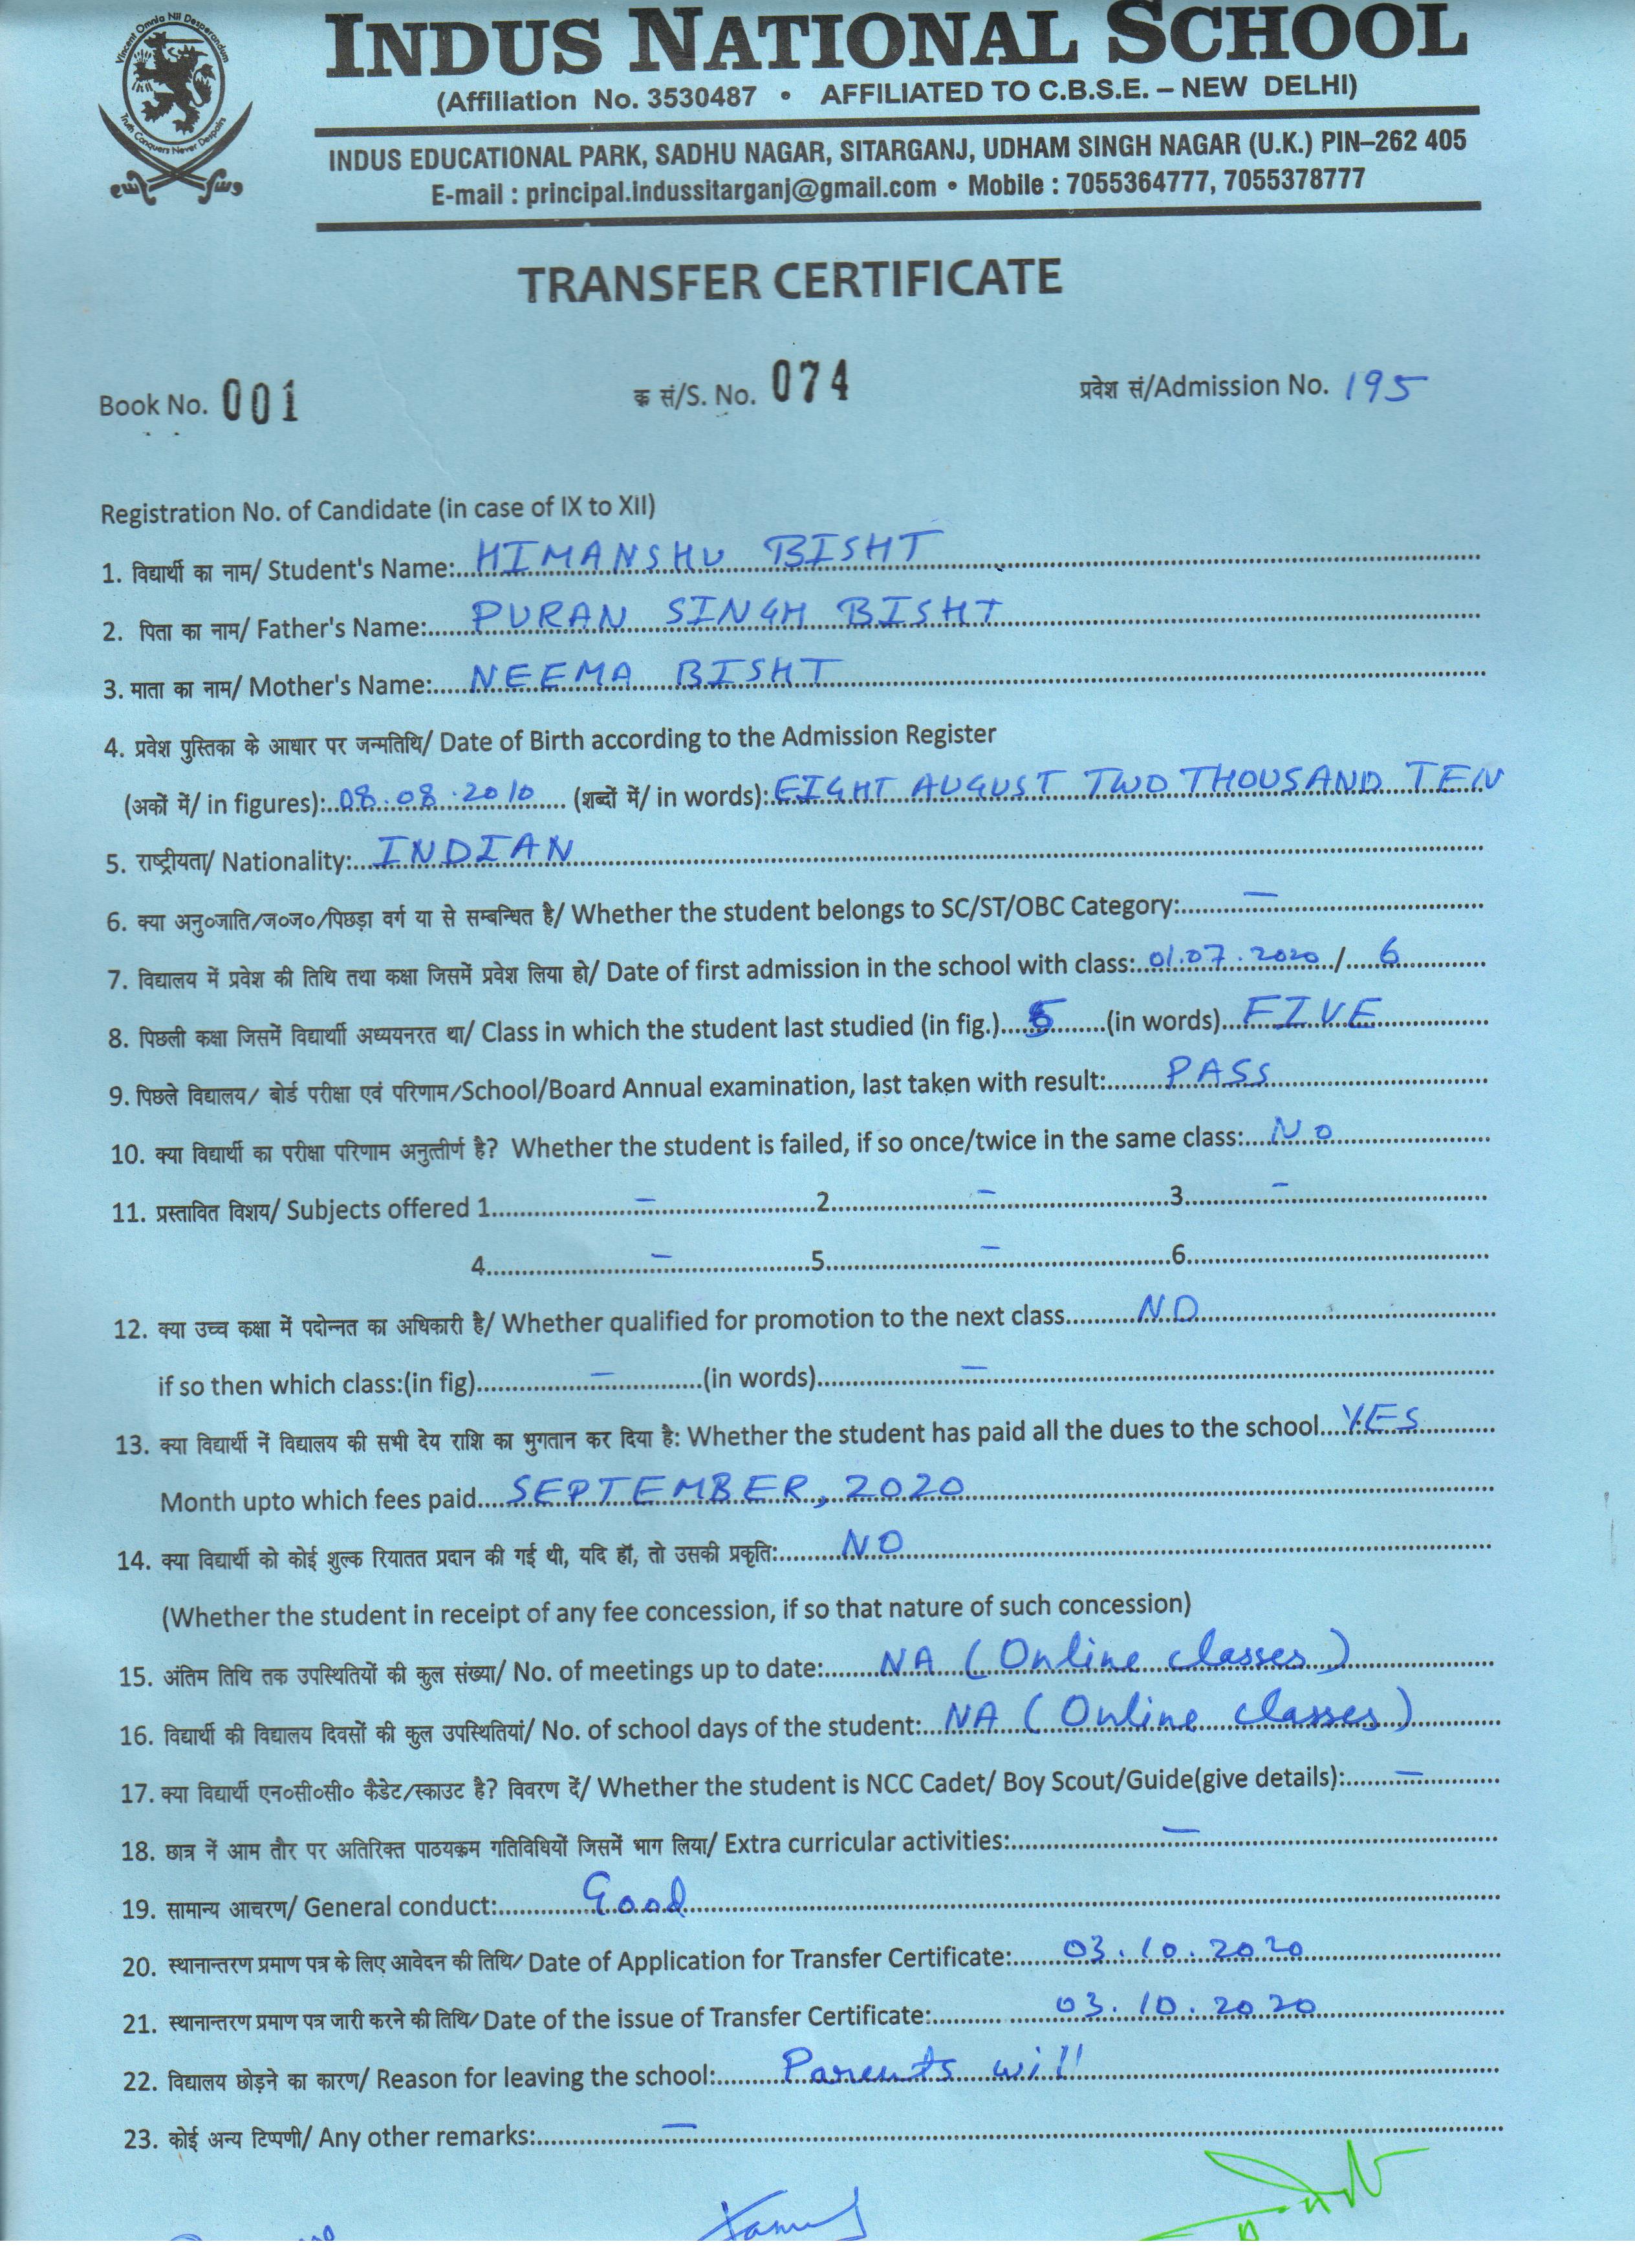 Vincent Omnia Nil Desperandum
Truth Conquers Never Despairs
INDUS NATIONAL SCHOOL
(Affiliation No. 3530487 • AFFILIATED TO C.B.S.E. – NEW DELHI)
INDUS EDUCATIONAL PARK, SADHU NAGAR, SITARGANJ, UDHAM SINGH NAGAR (U.K.) PIN–262 405
E-mail : principal.indussitarganj@gmail.com • Mobile : 7055364777, 7055378777
TRANSFER CERTIFICATE
Book No. 001 क्र सं/S. No. 074 प्रवेश सं/Admission No. 195
Registration No. of Candidate (in case of IX to XII)
1. विद्यार्थी का नाम/ Student's Name: HIMANSHU BISHT
2. पिता का नाम/ Father's Name: PURAN SINGH BISHT
3. माता का नाम/ Mother's Name: NEEMA BISHT
4. प्रवेश पुस्तिका के आधार पर जन्मतिथि/ Date of Birth according to the Admission Register
(अकों में/ in figures): 08.08.2010 (शब्दों में/ in words): EIGHT AUGUST TWO THOUSAND TEN
5. राष्ट्रीयता/ Nationality: INDIAN
6. क्या अनु०जाति/ज०ज०/पिछड़ा वर्ग या से सम्बन्धित है/ Whether the student belongs to SC/ST/OBC Category: –
7. विद्यालय में प्रवेश की तिथि तथा कक्षा जिसमें प्रवेश लिया हो/ Date of first admission in the school with class: 01.07.2020 / 6
8. पिछली कक्षा जिसमें विद्यार्थाी अध्ययनरत था/ Class in which the student last studied (in fig.) 5 (in words) FIVE
9. पिछले विद्यालय/ बोर्ड परीक्षा एवं परिणाम/School/Board Annual examination, last taken with result: PASS
10. क्या विद्यार्थी का परीक्षा परिणाम अनुत्तीर्ण है? Whether the student is failed, if so once/twice in the same class: NO
11. प्रस्तावित विशय/ Subjects offered 1 – 2 – 3 –
4 – 5 – 6
12. क्या उच्च कक्षा में पदोन्नत का अधिकारी है/ Whether qualified for promotion to the next class NO
if so then which class:(in fig) – (in words) –
13. क्या विद्यार्थी नें विद्यालय की सभी देय राशि का भुगतान कर दिया है: Whether the student has paid all the dues to the school YES
Month upto which fees paid SEPTEMBER, 2020
14. क्या विद्यार्थी को कोई शुल्क रियातत प्रदान की गई थी, यदि हॉ, तो उसकी प्रकृति: NO
(Whether the student in receipt of any fee concession, if so that nature of such concession)
15. अंतिम तिथि तक उपस्थितियों की कुल संख्या/ No. of meetings up to date: NA (Online classes)
16. विद्यार्थी की विद्यालय दिवसों की कुल उपस्थितियां/ No. of school days of the student: NA (Online classes)
17. क्या विद्यार्थी एन०सी०सी० कैडेट/स्काउट है? विवरण दें/ Whether the student is NCC Cadet/ Boy Scout/Guide(give details): –
18. छात्र नें आम तौर पर अतिरिक्त पाठयक्रम गतिविधियों जिसमें भाग लिया/ Extra curricular activities: –
19. सामान्य आचरण/ General conduct: Good
20. स्थानान्तरण प्रमाण पत्र के लिए आवेदन की तिथि/ Date of Application for Transfer Certificate: 03.10.2020
21. स्थानान्तरण प्रमाण पत्र जारी करने की तिथि/ Date of the issue of Transfer Certificate: 03.10.2020
22. विद्यालय छोड़ने का कारण/ Reason for leaving the school: Parents will
23. कोई अन्य टिप्पणी/ Any other remarks: –